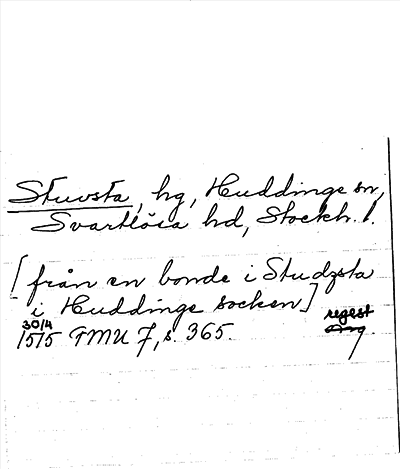 Stuvsta, hg, Huddinge sn,
Svartlösa hd, Stockh. l.
[från en bonde i Studzsta
i Huddinge socken]
regest
30/4
1515 GMU 7, s. 365.